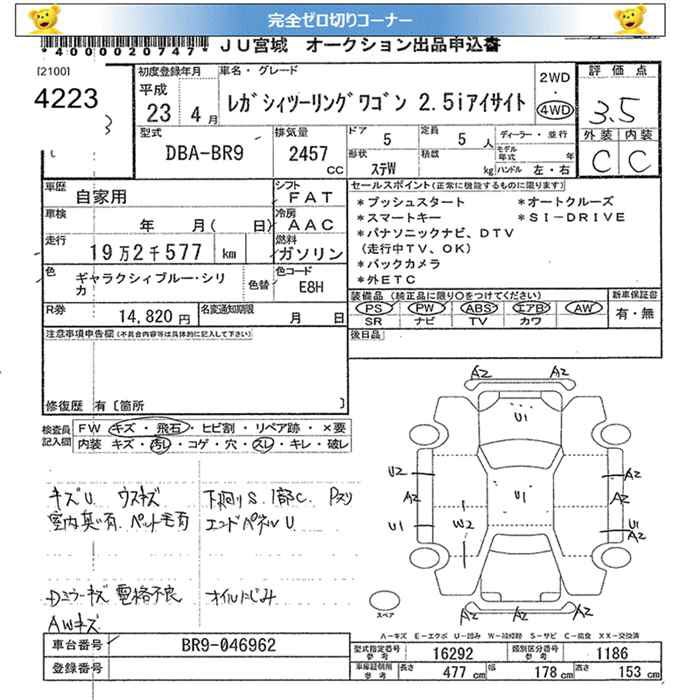 完全ゼロ切りコーナー
*4000020747*
JU宮城 オークション出品申込書
[2100]
4223
初度登録年月
平成
23 4 月
車名・グレード
レガシィツーリングワゴン 2.5iアイサイト
2WD
・
4WD
評価点
3.5
外装 内装
C C
型式
DBA-BR9
排気量
2457
CC
ドア
5
定員
5 人
形状
ステW
積載
kg
ディーラー・並行
モデル年式 年
ハンドル 左・右
車歴
自家用
シフト
FAT
車検
年 月( 日)
冷房
AAC
走行
19万2千577 km
燃料
ガソリン
色
ギャラクシィブルー・シリカ
色替
色コード
E8H
R券
14,820 円
名変通知期限
月 日
セールスポイント(正常に機能するものに限ります)
*プッシュスタート *オートクルーズ
*スマートキー *SI-DRIVE
*パナソニックナビ、DTV
(走行中TV、OK)
*バックカメラ
*外ETC
装備品 (純正品に限り○をつけてください)
PS PW ABS エアB AW
SR ナビ TV カワ
新車保証書
有・無
後日品
注意事項申告欄(不具合内容等は具体的に記入して下さい)
修復歴 有 [箇所 ]
検査員記入欄
FW キズ・飛石・ヒビ割・リペア跡・×要
内装 キズ・汚レ・コゲ・穴・スレ・キレ・破レ
キズU ウスキズ
室内臭い有 ペット毛有
下廻りS 1部C Pスリ
エンドパネルU
Dミラーキズ 電格不良
オイルにじみ
AWキズ
A2 A2
U1
U2
A2
A2
A2
U1
U1
W2
U1
A2
A2 A2
スペア
A-キズ E-エクボ U-凹み W-補修跡 S-サビ C-腐食 XX-交換済
車台番号
BR9-046962
登録番号
型式指定番号 参考
16292
類別区分番号 参考
1186
車庫証明用 参考
長さ 477 cm
幅 178 cm
高さ 153 cm